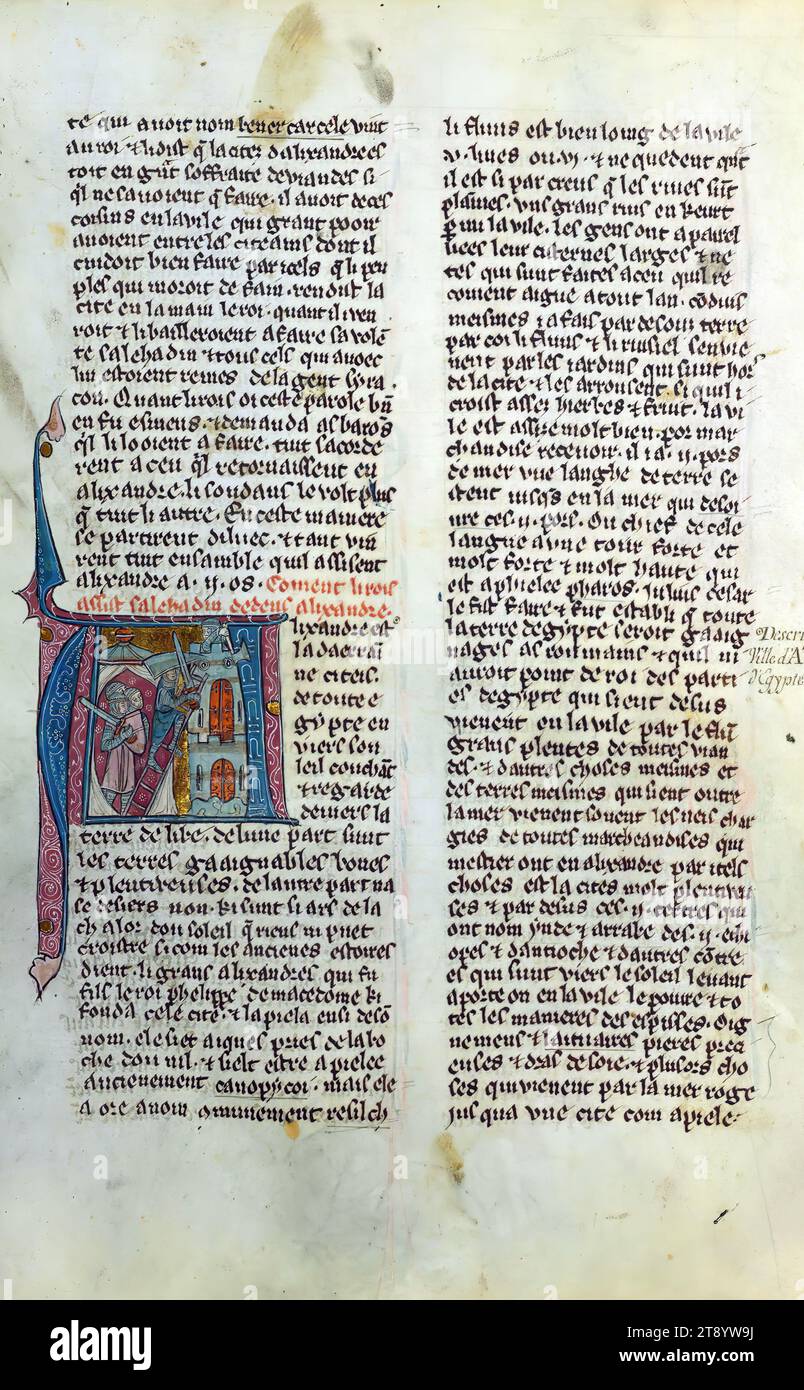 te qui avoit nom bener car cele vint
au roi & li dist q̄ la citez d'alixandre es
toit en grāt soffraite de viandes si
q̄l ne savoient q̄ faire . il avoit de ces
cosins en la vile qui grant pooir
avoient entre les citeains dont il
cuidoit bien faire par icels q̄ li peu
ples qui moroit de fain . rendist la
cite en la main le roi . quant il ven
roit & li bailleroient a faire sa volē
te salehadin & tous cels qui avoec
lui estoient remes de la gent syra
cou . Quant li rois oi ceste parole bn̄
en fu esmeus . & demanda as barōs
q̄l li looient a faire . tuit sacorde
rent a ceu q̄l retornaissent en
alixandre . li soudans le volt plus
q̄ tuit li autre . En ceste maniere
se partirent diluec . & tant vin
rent tuit ensamble quil assisent
alixandre a .ii. os . Coment li rois
assist salehadin dedens alixandre .
lixandre est
la daerrai
ne citeis .
de toute e
gypte en
viers son
leil couchāt
& regarde
deviers la
terre de libe . de lune part sunt
les terres gaaignables bones
& plentiveuses . de lautre part na
se desiers non . ki sunt si ars de la
chalor dou soleil q̄ riens ni puet
croistre si com les anciènes estoires
dient . li grans alixandres qui fu
fils le roi phelippe de macedoine ki
fonda cele cité . & la piela ensi de sō
nom . ele siet aiques pries de la bo
che dou nil . & sielt estre apielee
ancienement canopicoi . mais ele
a ore a nom cōmunement resilch
li fluns est bien loing de la vile
.v. liues ou .vi. & ne quedent qn̄t
il est si par creus q̄ les rives sūt
plaines . uns grans rius en keurt
p̄mi la vile . les gens ont aparel
liees leur cisternes larges & ne
tes qui sunt faites a ceu quil re
coivent aigue a tout lan . cōduis
meismes i a fais par desous terre
par coi li fluns & li ruisiel senvie
nent par les jardins qui sunt hors
de la cite & les arrousent . si quil i
croist assei hierbes & fruit . la vi
le est assise molt bien . por mar
chandise recevoir . il i a .ii. pors
de mer une langhe de terre se
stent jusq̄s en la mer qui desoi
vre ces .ii. pors . Ou chief de cele
langue a une tour forte et
molt forte & molt haute qui
est apielee pharos . julius cesar
le fist faire & fut establi q̄ toute
la terre degypte seroit gaaig
nages as romains & quil ni
auroit point de roi des parti
es degypte qui sient desus
vienent en la vile par le flū
grans plentes de toutes vian
des . & dautres choses meismes et
des terres meismes qui sient outre
la mer vienent sovent les neis char
gies de toutes marcheandises qui
mestier ont en alixandre par itels
choses est la cités molt plentivu
ses & par desus ces .ii. terres qui
ont nom ynde & arrabe des .ii. ethi
opes & dantioche & dautres cōtre
es qui sunt viers le soleil levant
aporte on en la vile le poure & to
tes les manieres des espisses . Oig
nemens & laituaires pieres preci
euses & dras de soie . & plusors cho
ses qui vienent par la mer roge
jusqua une cité com apiele .
Descri
Ville d'A
d'Egypte
alamy
Image ID: 2T8YW9J
www.alamy.com